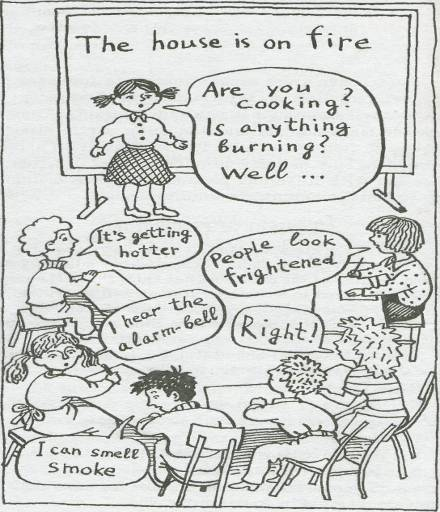 The house is on fire
Are you
cooking?
Is anything
burning?
Well ...
It's getting
hotter
People look
frightened
I hear the
alarm-bell
Right!
I can smell
smoke